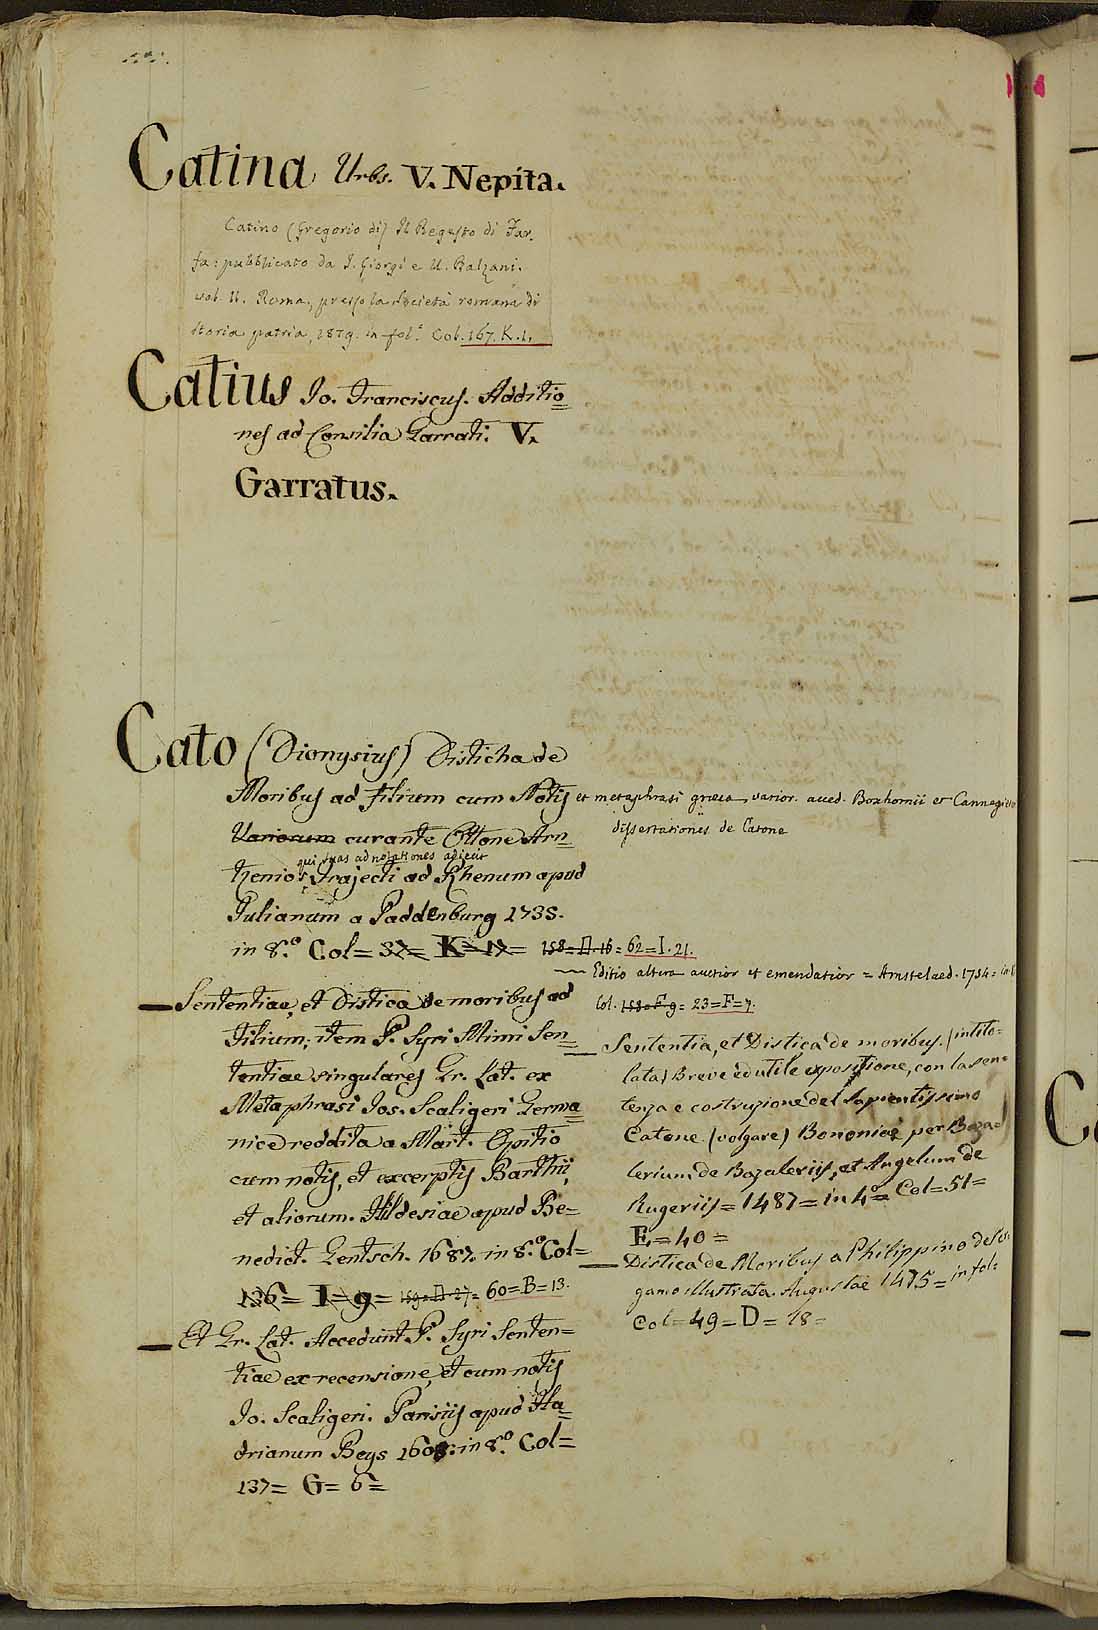 Catina Urbs. V. Nepita.
Catino (Gregorio di) Il Regesto di Far-
fa: pubblicato da I. Giorgi e U. Balzani.
vol. II. Roma, presso la Società romana di
storia patria, 1879. in fol.° Col. 167. K. 1.
Catius Jo. Franciscus. Additio=
nes ad Consilia Garrati. V.
Garratus.
Cato (Dionysius) Disticha de
Moribus ad Filium cum Notis
Variorum curante Ottone Arn=
qui suas adnotationes adjecit
tzenio Trajecti ad Rhenum apud
Julianum a Paddenburg 1735.
in 8.° Col= 37= K= 17= 158= D. 16= 62= I. 21.
— Sententiae, et Distica de moribus ad
Filium; item P. Syri Mimi Sen=
tentiae singulares Gr. Lat. ex
Metaphrasi Jos. Scaligeri Germa=
nice reddita a Mart. Opitio
cum notis, et excerptis Barthii,
et aliorum. Hildesiae apud Be=
nedict. Gentsch. 1687. in 8.° Col=
136= I= 9= 159= D. 27= 60= B= 13.
— Et Gr. Lat. Accedunt P. Syri Senten=
tiae ex recensione, et cum notis
Jo. Scaligeri. Parisiis apud Ha=
drianum Beys 1605. in 8.° Col=
137= G= 6=
et metaphrasi græca varior. acced. Boxhornii et Cannegieteri
dissertationes de Catone
— Editio altera auctior et emendatior = Amstelaed. 1754= in 8
Col. 158= F= 9= 23= F= 7.
— Sententia, et Distica de moribus. (intito=
lata) Breve ed utile expositione, con la sen=
tenza e costruzione del Sapientissimo
Catone (volgare) Bononiae per Baza=
lerium de Bazaleriis, et Angelum de
Rugeriis= 1487= in 4°= Col= 51=
E= 40=
— Distica de Moribus a Philippino de
gamo illustrata. Augustae 1475= in fol:
Col= 49= D= 18=